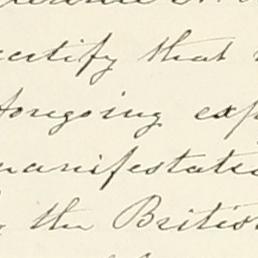 certify that
foregoing exp
manifestatio
the British